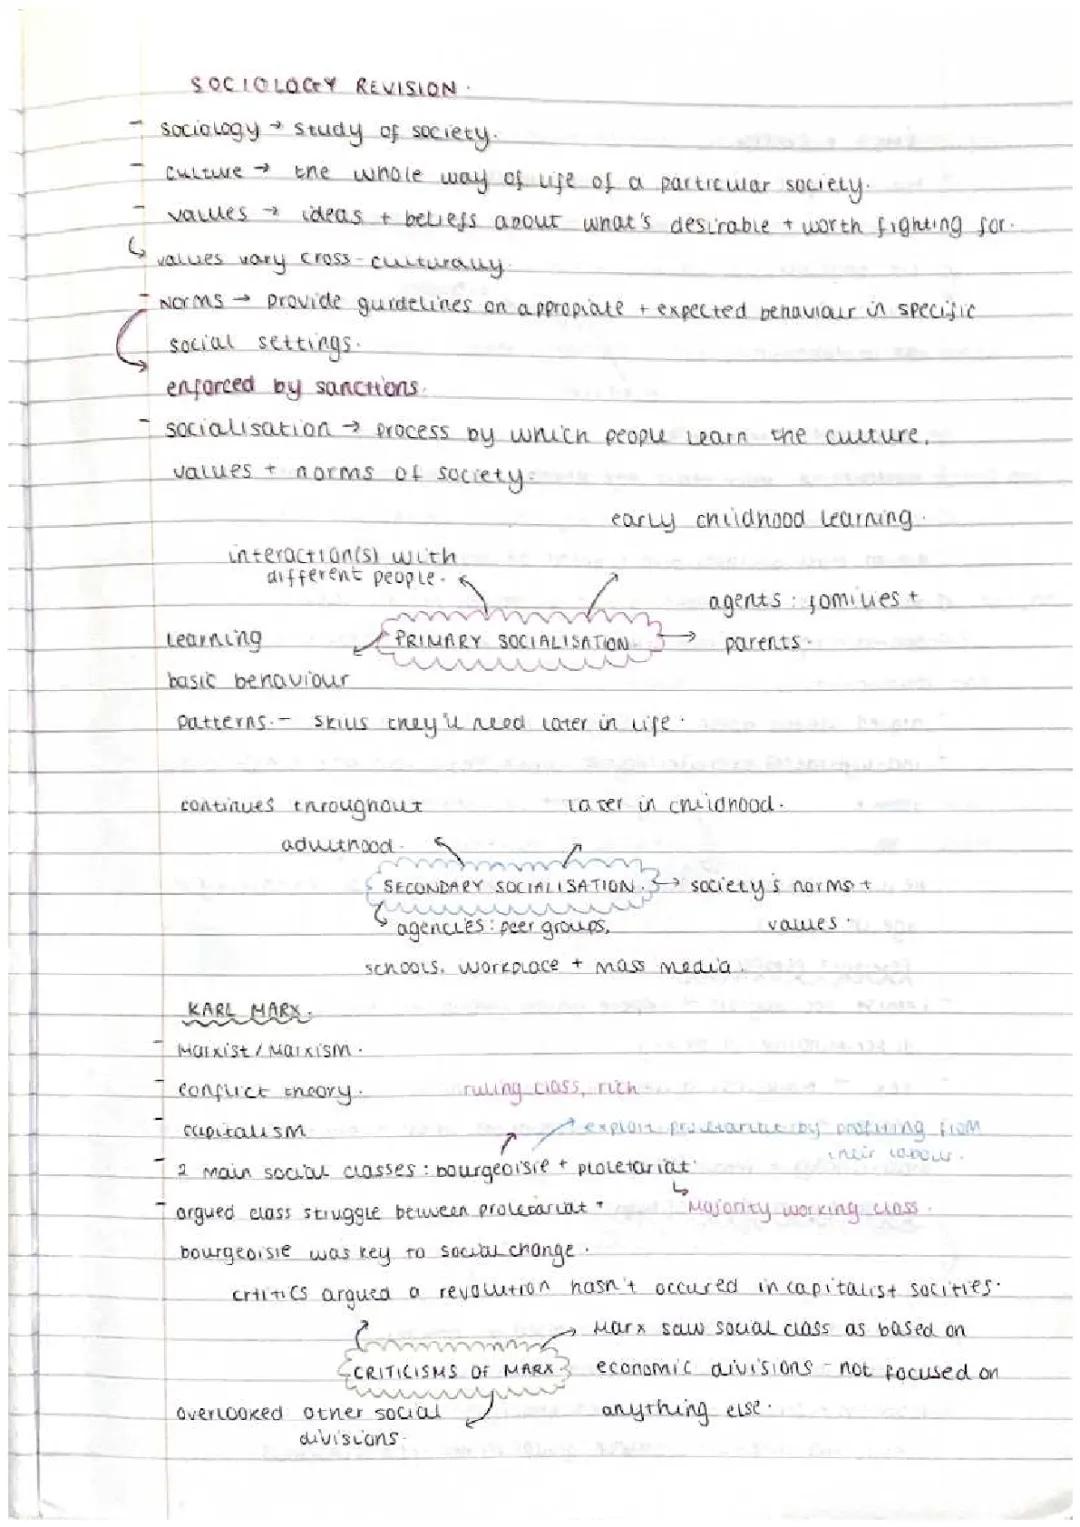 SOCIOLOGY REVISION.
- sociology → study of society.
- culture → the whole way of life of a particular society.
- values → ideas + beliefs about what's desirable + worth fighting for.
↳ values vary cross-culturally.
- Norms → provide guidelines on appropiate + expected behaviour in specific
social settings.
enforced by sanctions.
- socialisation → process by which people learn the culture,
values + norms of society.
early childhood learning.
interaction(s) with
different people.
agents: families +
parents.
PRIMARY SOCIALISATION
learning
basic behaviour
patterns. - skills they'll need later in life.
continues throughout
adulthood.
later in childhood.
SECONDARY SOCIALISATION. → society's norms +
values.
agencies: peer groups,
schools, workplace + mass media.
KARL MARX.
- Marxist / Marxism.
- conflict theory.
ruling class, rich
- capitalism
exploit proletariat by profiting from
their labour.
- 2 main social classes: bourgeoisie + proletariat.
↳ Majority working class.
- argued class struggle between proletariat +
bourgeoisie was key to social change.
critics argued a revolution hasn't occured in capitalist socities.
Marx saw social class as based on
economic divisions - not focused on
anything else.
CRITICISMS OF MARX
overlooked other social
divisions.